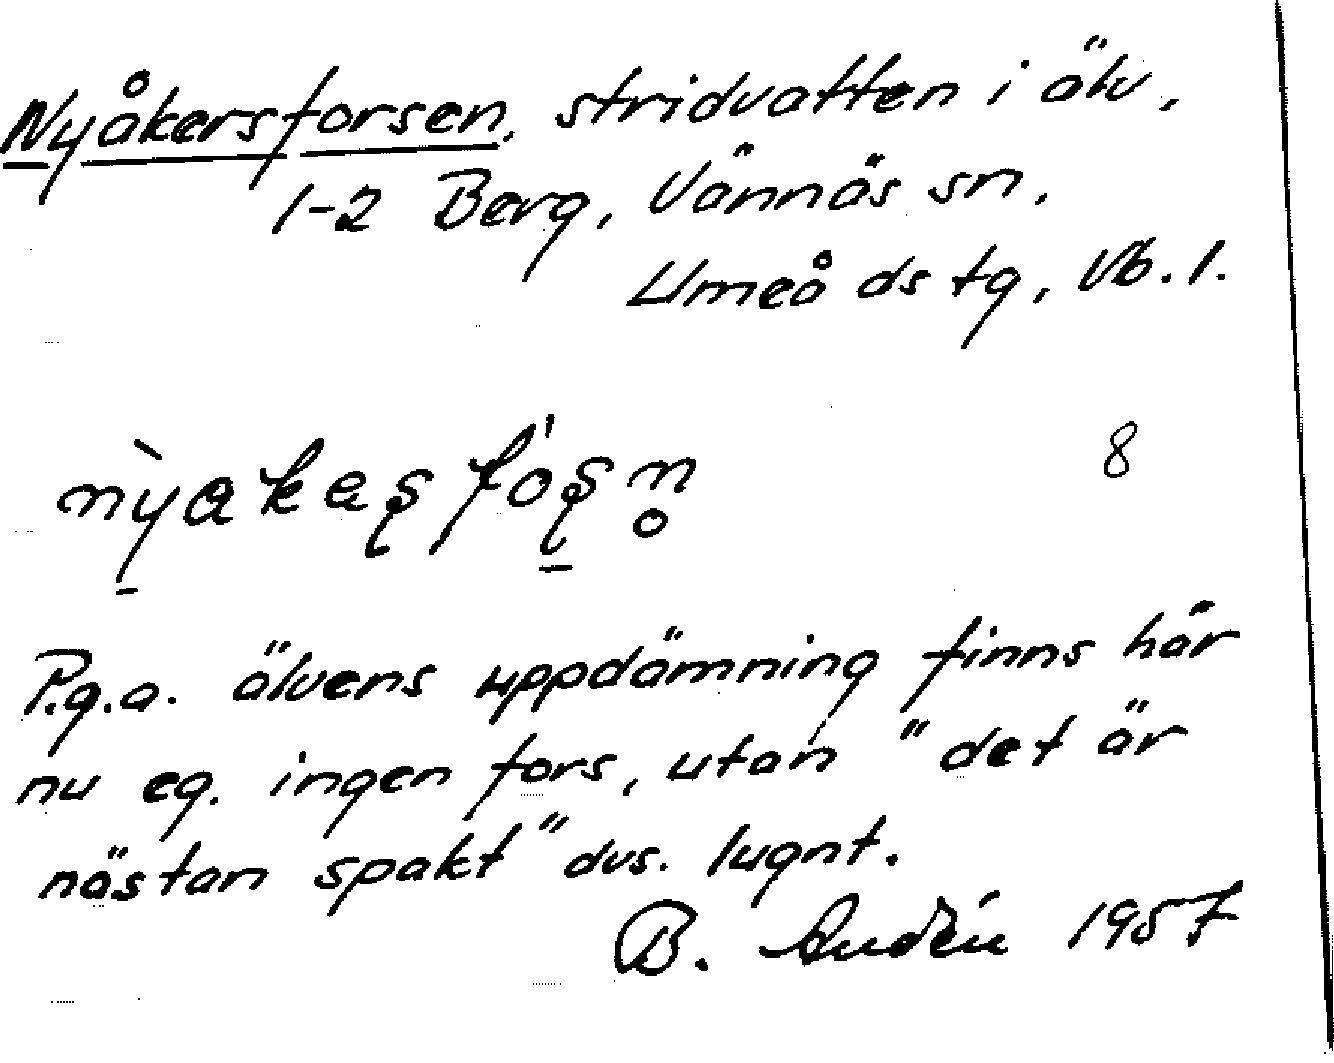 Nyåkersforsen, stridvatten i älv,
1-2 Berg, Vännäs sn,
Umeå ds tg, Vb. l.
8
P.g.a. älvens uppdämning finns här
nu eg. ingen fors, utan "det är
nästan spakt" dvs. lugnt.
B. Audén 1957